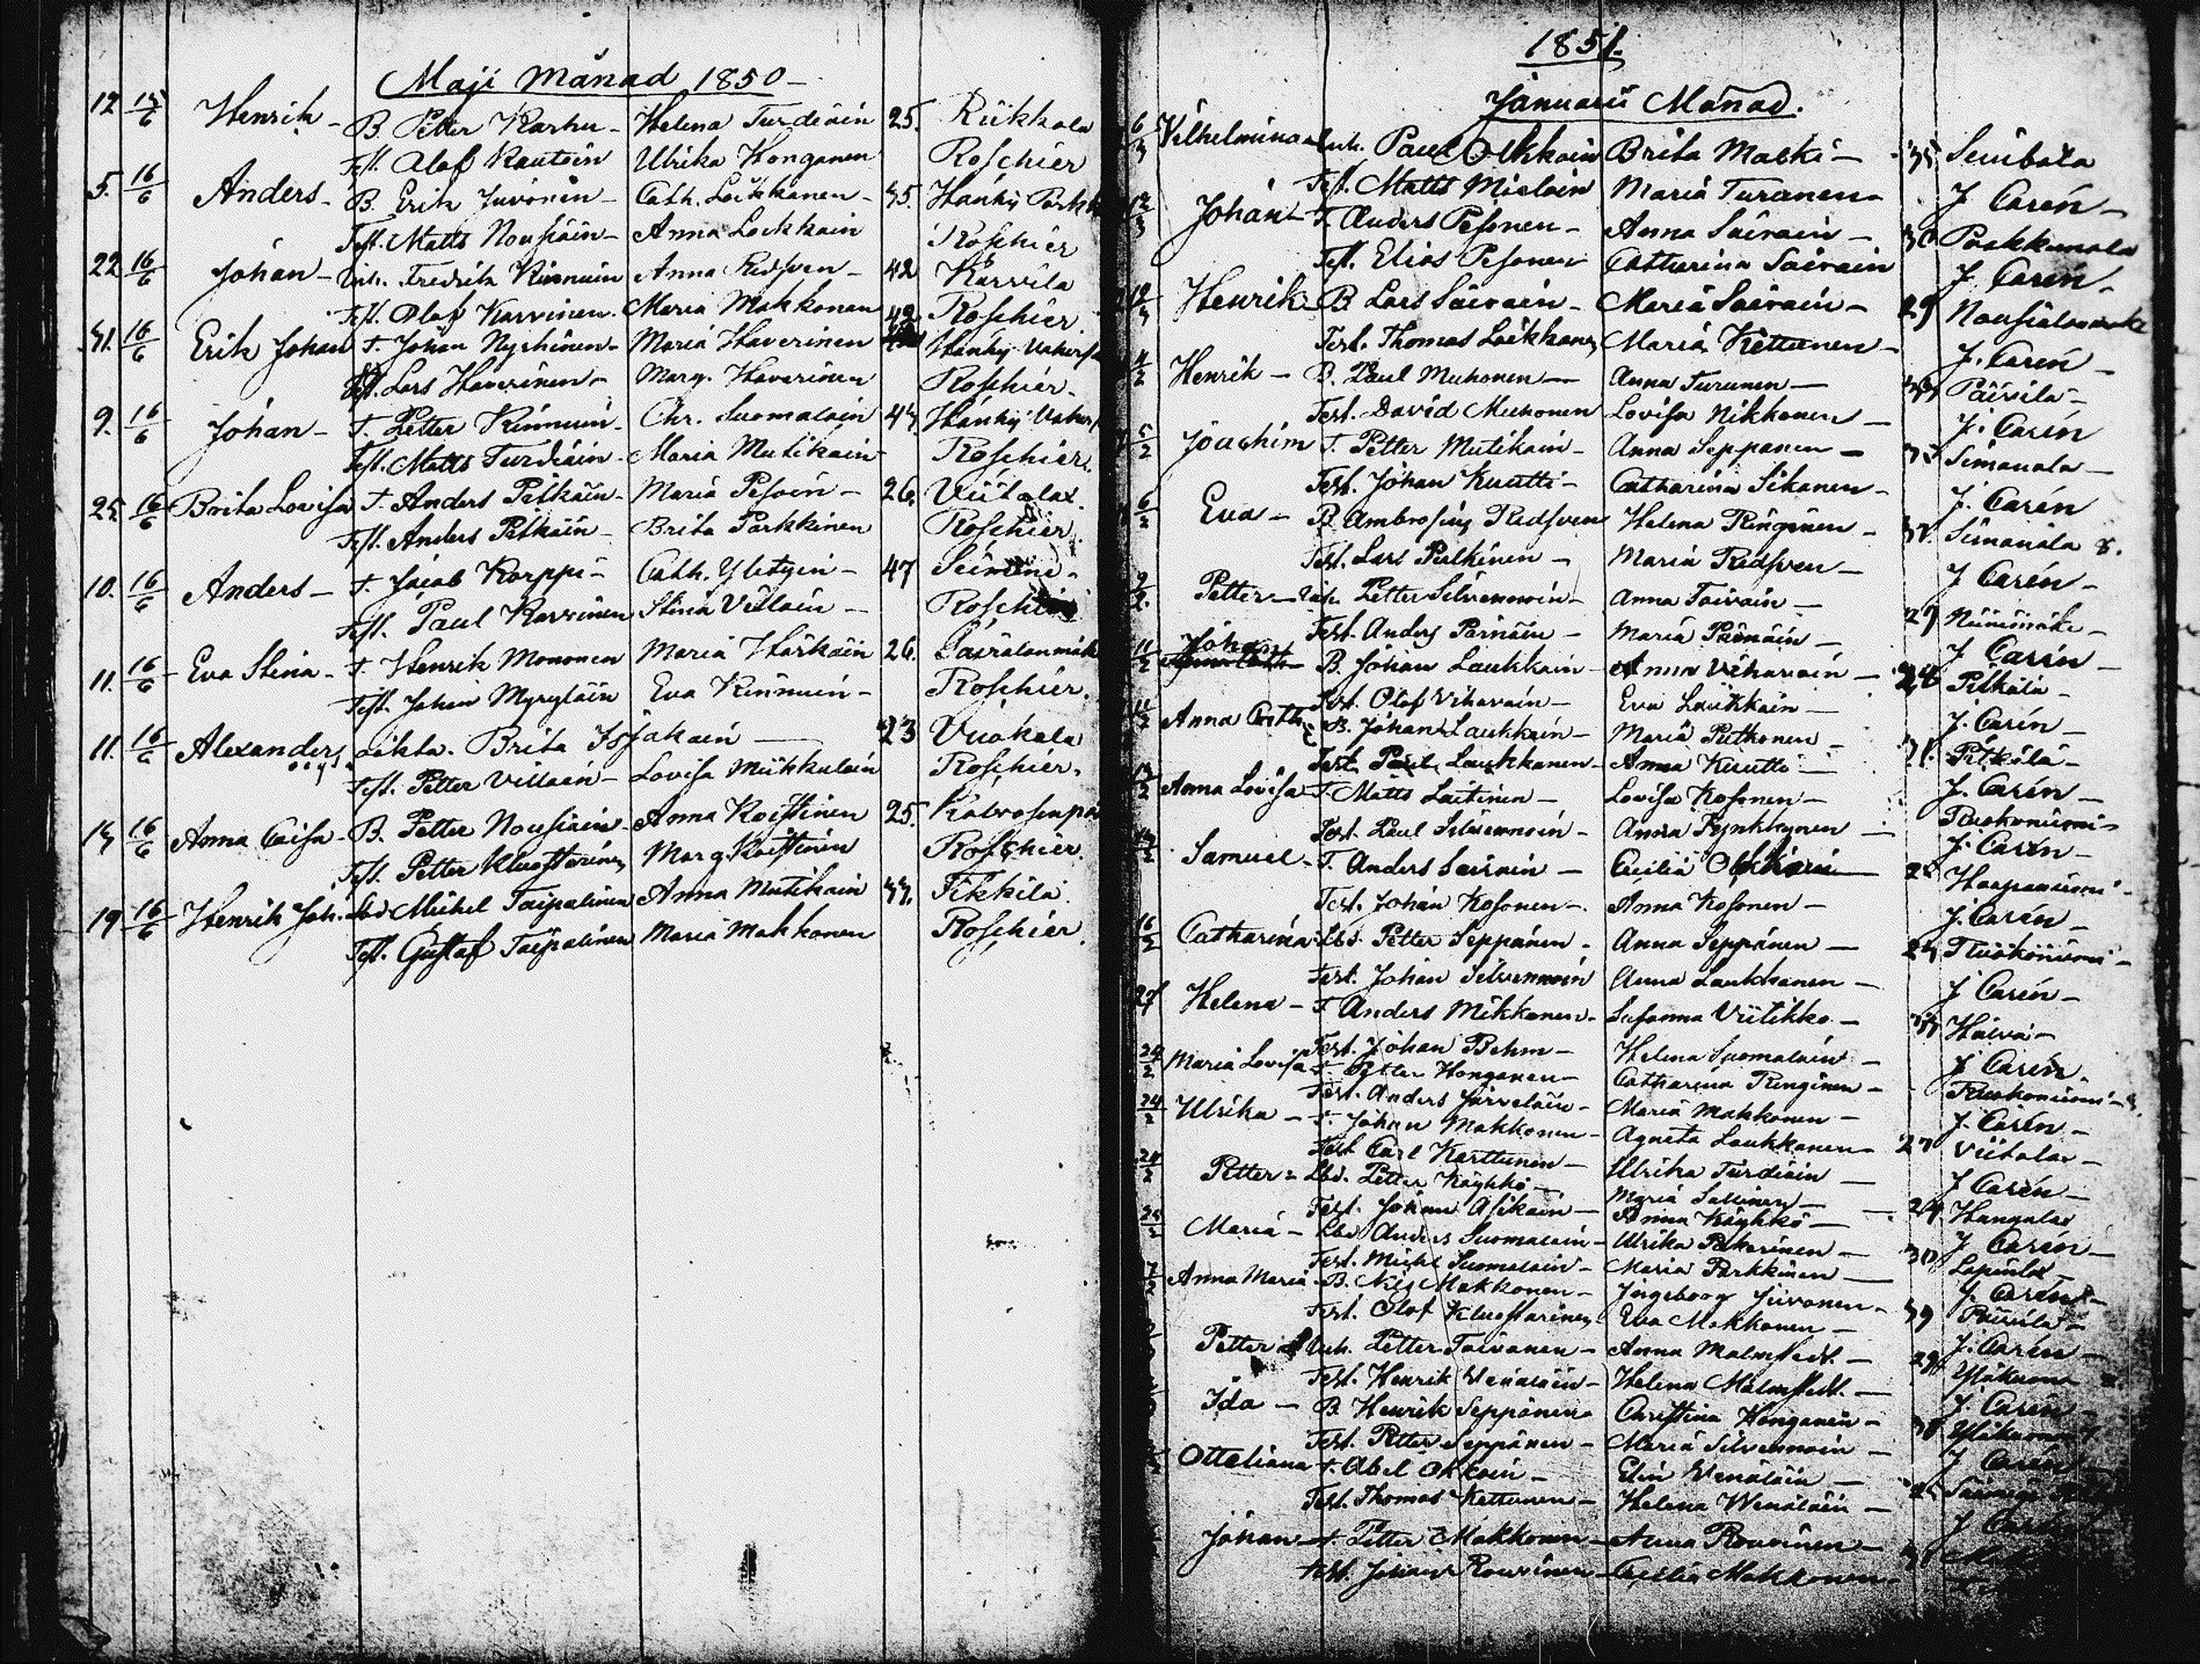 Maji Månad 1850
12 15/6 Henrik B. Petter Karhu Helena Turdiain 25. Riikkala
Test. Olof Kautoin Ulrika Honganen Roschier
5. 16/6 Anders B. Erik Juvonen Cath. Loikkanen 35. Hanky
Test. Matts Nousiain Anna Lockkain Roschier
22 16/6 Johan Inh. Fredrik Kinnuin Anna Redsven 42 Karvila
Test. Olof Karvinen Maria Makkonen Roschier
31. 16/6 Erik Johan T. Johan Nyrhinen Maria Haverinen Hanky
Test. Lars Haverinen Marg. Haverinen Roschier
9. 16/6 Johan T. Petter Kinnuin Chr. Suomalain 43. Hanky
Test. Matts Turdiain Maria Mutikain Roschier
25. 16/6 Brita Lovisa T. Anders Pitkäin Maria Pesoin 26. Viitalax
Test. Anders Pitkäin Brita Parkkinen Roschier
10. 16/6 Anders T. Jacob Korppi Cath. 47
Test. Paul Karvinen Stina Villain Roschier
11. 16/6 Eva Stina T. Henrik Mononen Maria Härkäin 26.
Test. Johan Myryläin Eva Kinnuin Roschier
11. 16/6 Alexander Brita Issakain 23 Vuokala
Test. Petter Villain Lovisa Miikkulain Roschier
13 16/6 Anna Caisa B. Petter Nousiain Anna Koistinen 25.
Test. Petter Kluostarinen Marg. Koistinen Roschier
19 16/6 Henrik Joh. Lbd Michel Taipalinen Anna Mutikain 33. Tikkila
Test. Gustaf Taipalinen Maria Makkonen Roschier
1851.
Januarii Månad.
6/3 Vilhelmina Inh. Paul Olkkain Brita Matki 35
Test. Matts Mielain Maria Turanen J Carén
12/3 Johan T. Anders Pesonen Anna Sairain 30 Paakkunala
Test. Elias Pesonen Catharina Sairain J. Carén
Henrik B Lars Sairain Maria Sairain 29
Test. Thomas Loikkanen Maria Kettunen J. Carén
4/2 Henrik B. Paul Muhonen Anna Turunen Päivilä
Test. David Muhonen Lovisa Nikkonen J. Carén
5/2 Joachim T. Petter Mutikain Anna Seppänen Simanala
Test. Johan Kuutti Catharina Sikanen J. Carén
6/2 Eva B. Ambrosius Redsven Helena Ringinen Simanala 8.
Test. Lars Pulkinen Maria Redsven J Carén
9/2 Petter Inh. Petter Silvennoin Anna Toivain 27 Niinimäki
Test. Anders Pärnäin Maria Pärnäin J Carén
11/2 Johan B. Johan Laukkain Anna Vihavain Pitkälä
Test. Olof Vihavain Eva Laukkain J. Carén
11/2 Anna Cath. B. Johan Laukkain Maria Puthonen 31. Pitkälä
Test. Paul Laukkanen Anna Kuutti J. Carén
Anna Lovisa T. Matts Laitinen Lovisa Kosonen Ruokoniemi
Test. Paul Silvennoin Anna Pynkkynen J. Carén
Samuel T. Anders Sairain Cecilia Haapaniemi
Test. Johan Kosonen Anna Kosonen J. Carén
16/2 Catharina Lbd. Petter Seppänen Anna Seppänen Ruokoniemi
Test. Johan Silvennoin Anna Laukkanen J Carén
Helena T Anders Mikkonen Susanna Viitikko Haiva
Test. Johan Behm Helena Suomalain J Carén
24/2 Maria Lovisa T. Petter Honganen Catharina Ringinen Ruokoniemi
Test. Anders Järveläin Maria Makkonen J. Carén
24/2 Ulrika T. Johan Makkonen Agneta Laukkanen 27 Viitalax
Test Carl Karttunen Ulrika Turdiain J Carén
Petter Lbd. Petter Käyhkö Maria Sallinen 24 Hangalax
Test. Johan Asikain Anna Käyhkö J Carén
Maria Lbd Anders Suomalain Ulrika Pakarinen 30
Test. Michel Suomalain Maria Parkkinen J. Carén
Anna Maria B. Nils Makkonen Ingeborg Juvonen 39 Päivilä
Test. Olof Kluostarinen Eva Makkonen J. Carén
Petter Inh. Petter Toivanen Anna Malmstedt
Test. Henrik Venäläin Helena Malmstedt J. Carén
Ida B. Henrik Seppänen Christina Honganen
Test. Petter Seppänen Maria Silvennoin J Carén
Otteliana T. Abel Okkoin Elin Wenäläin
Test. Thomas Kettunen Helena Wenäläin J
Johan T. Petter Makkonen Anna Rouvinen
Test. Johan Rouvinen Cecilia Makkonen